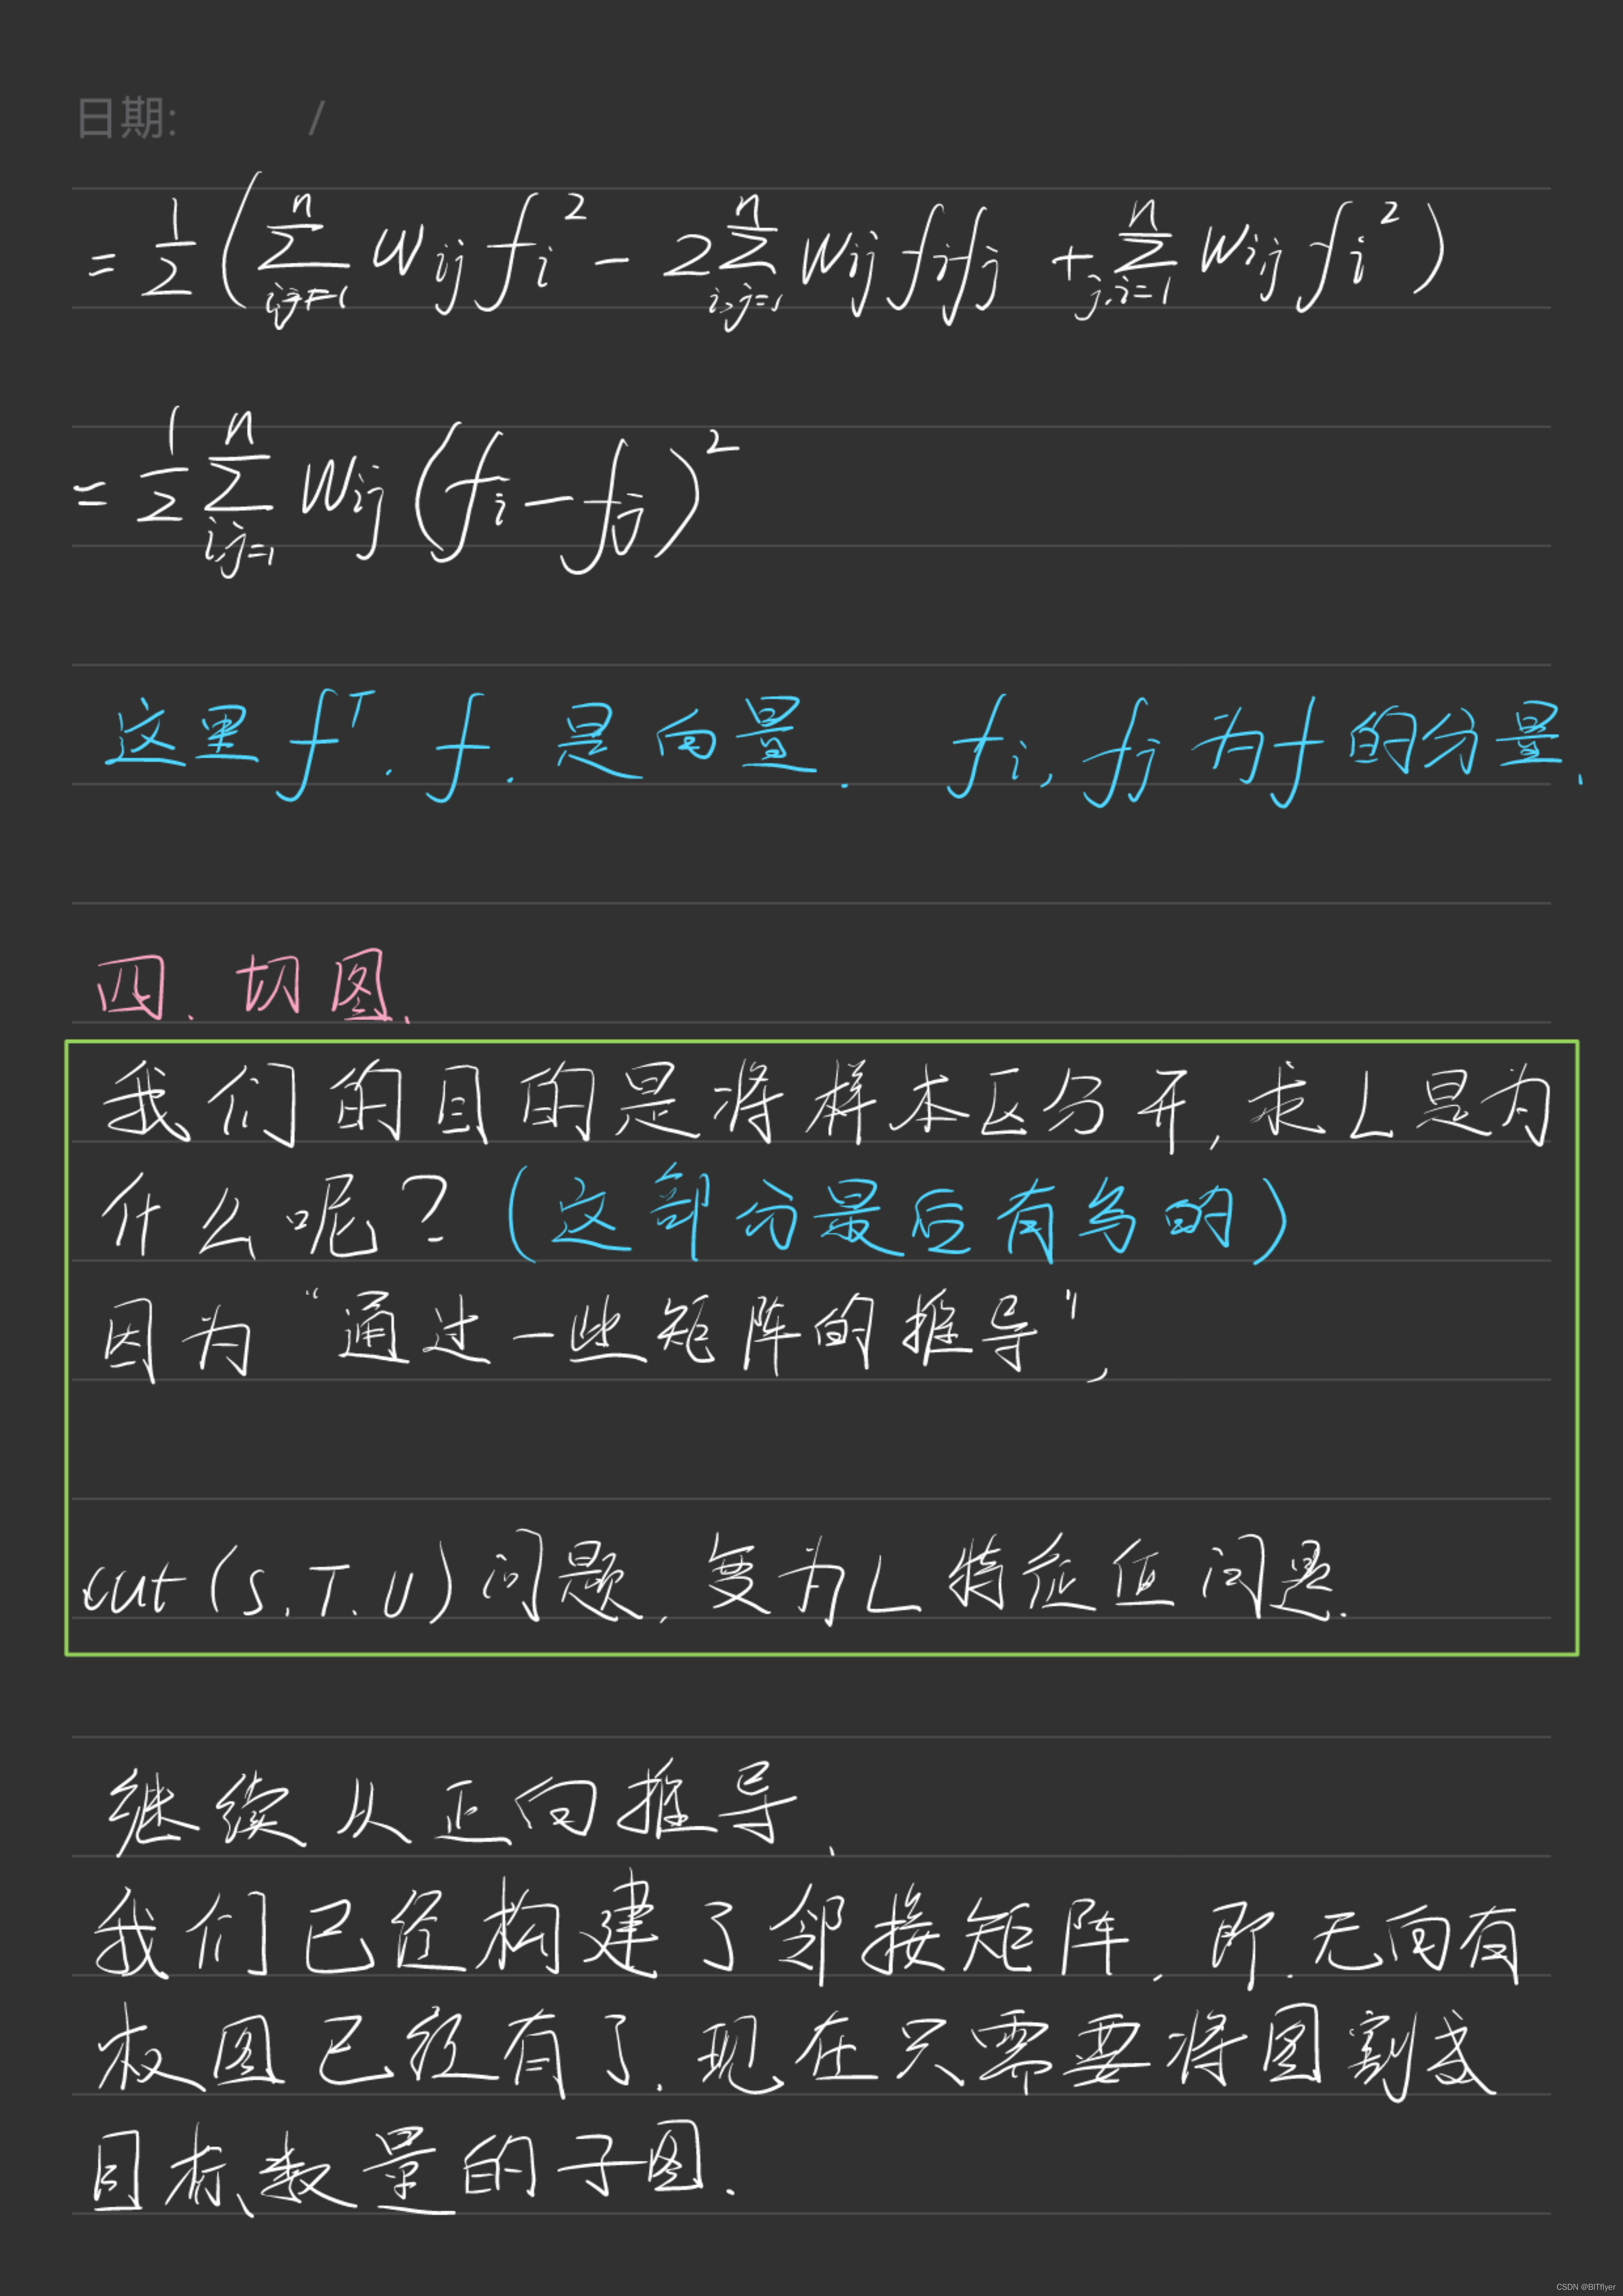 日期: /
= 1/2 ( \sum_{i,j=1}^{n} w_{ij} f_i^2 - 2 \sum_{i,j=1}^{n} w_{ij} f_i f_j + \sum_{j,i=1}^{n} w_{ij} f_i^2 )
= 1/2 \sum_{i,j=1}^{n} w_{ij} (f_i - f_j)^2
这里 f^T, f, 是向量. f_i, f_j 为 f 的分量.
四、切图.
我们的目的是将样本区分开, 求 L 是为
什么呢? (这部分最后有写的)
因为 “通过一些矩阵的推导”,
cut (S, T, U) 问题, 变为 L 特征值问题.
继续从正向推导.
我们已经构建了邻接矩阵, 即, 无向有
权图已经有了, 现在只需要将图割成
目标数量的子图.
CSDN @BITflyer